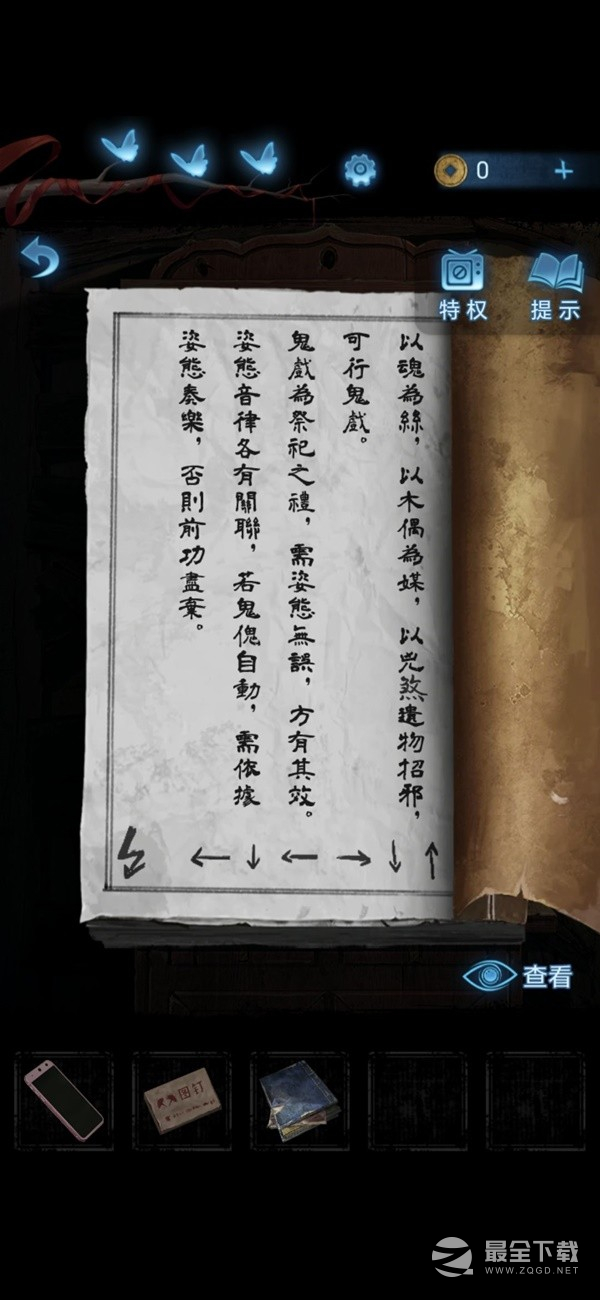 0
特权
提示
以魂為絲，以木偶為媒，以兇煞遺物招邪，
可行鬼戲。
鬼戲為祭祀之禮，需姿態無誤，方有其效。
姿態音律各有關聯，若鬼傀自動，需依據
姿態奏樂，否則前功盡棄。
查看
图钉
最全下载
WWW.ZQGD.NET